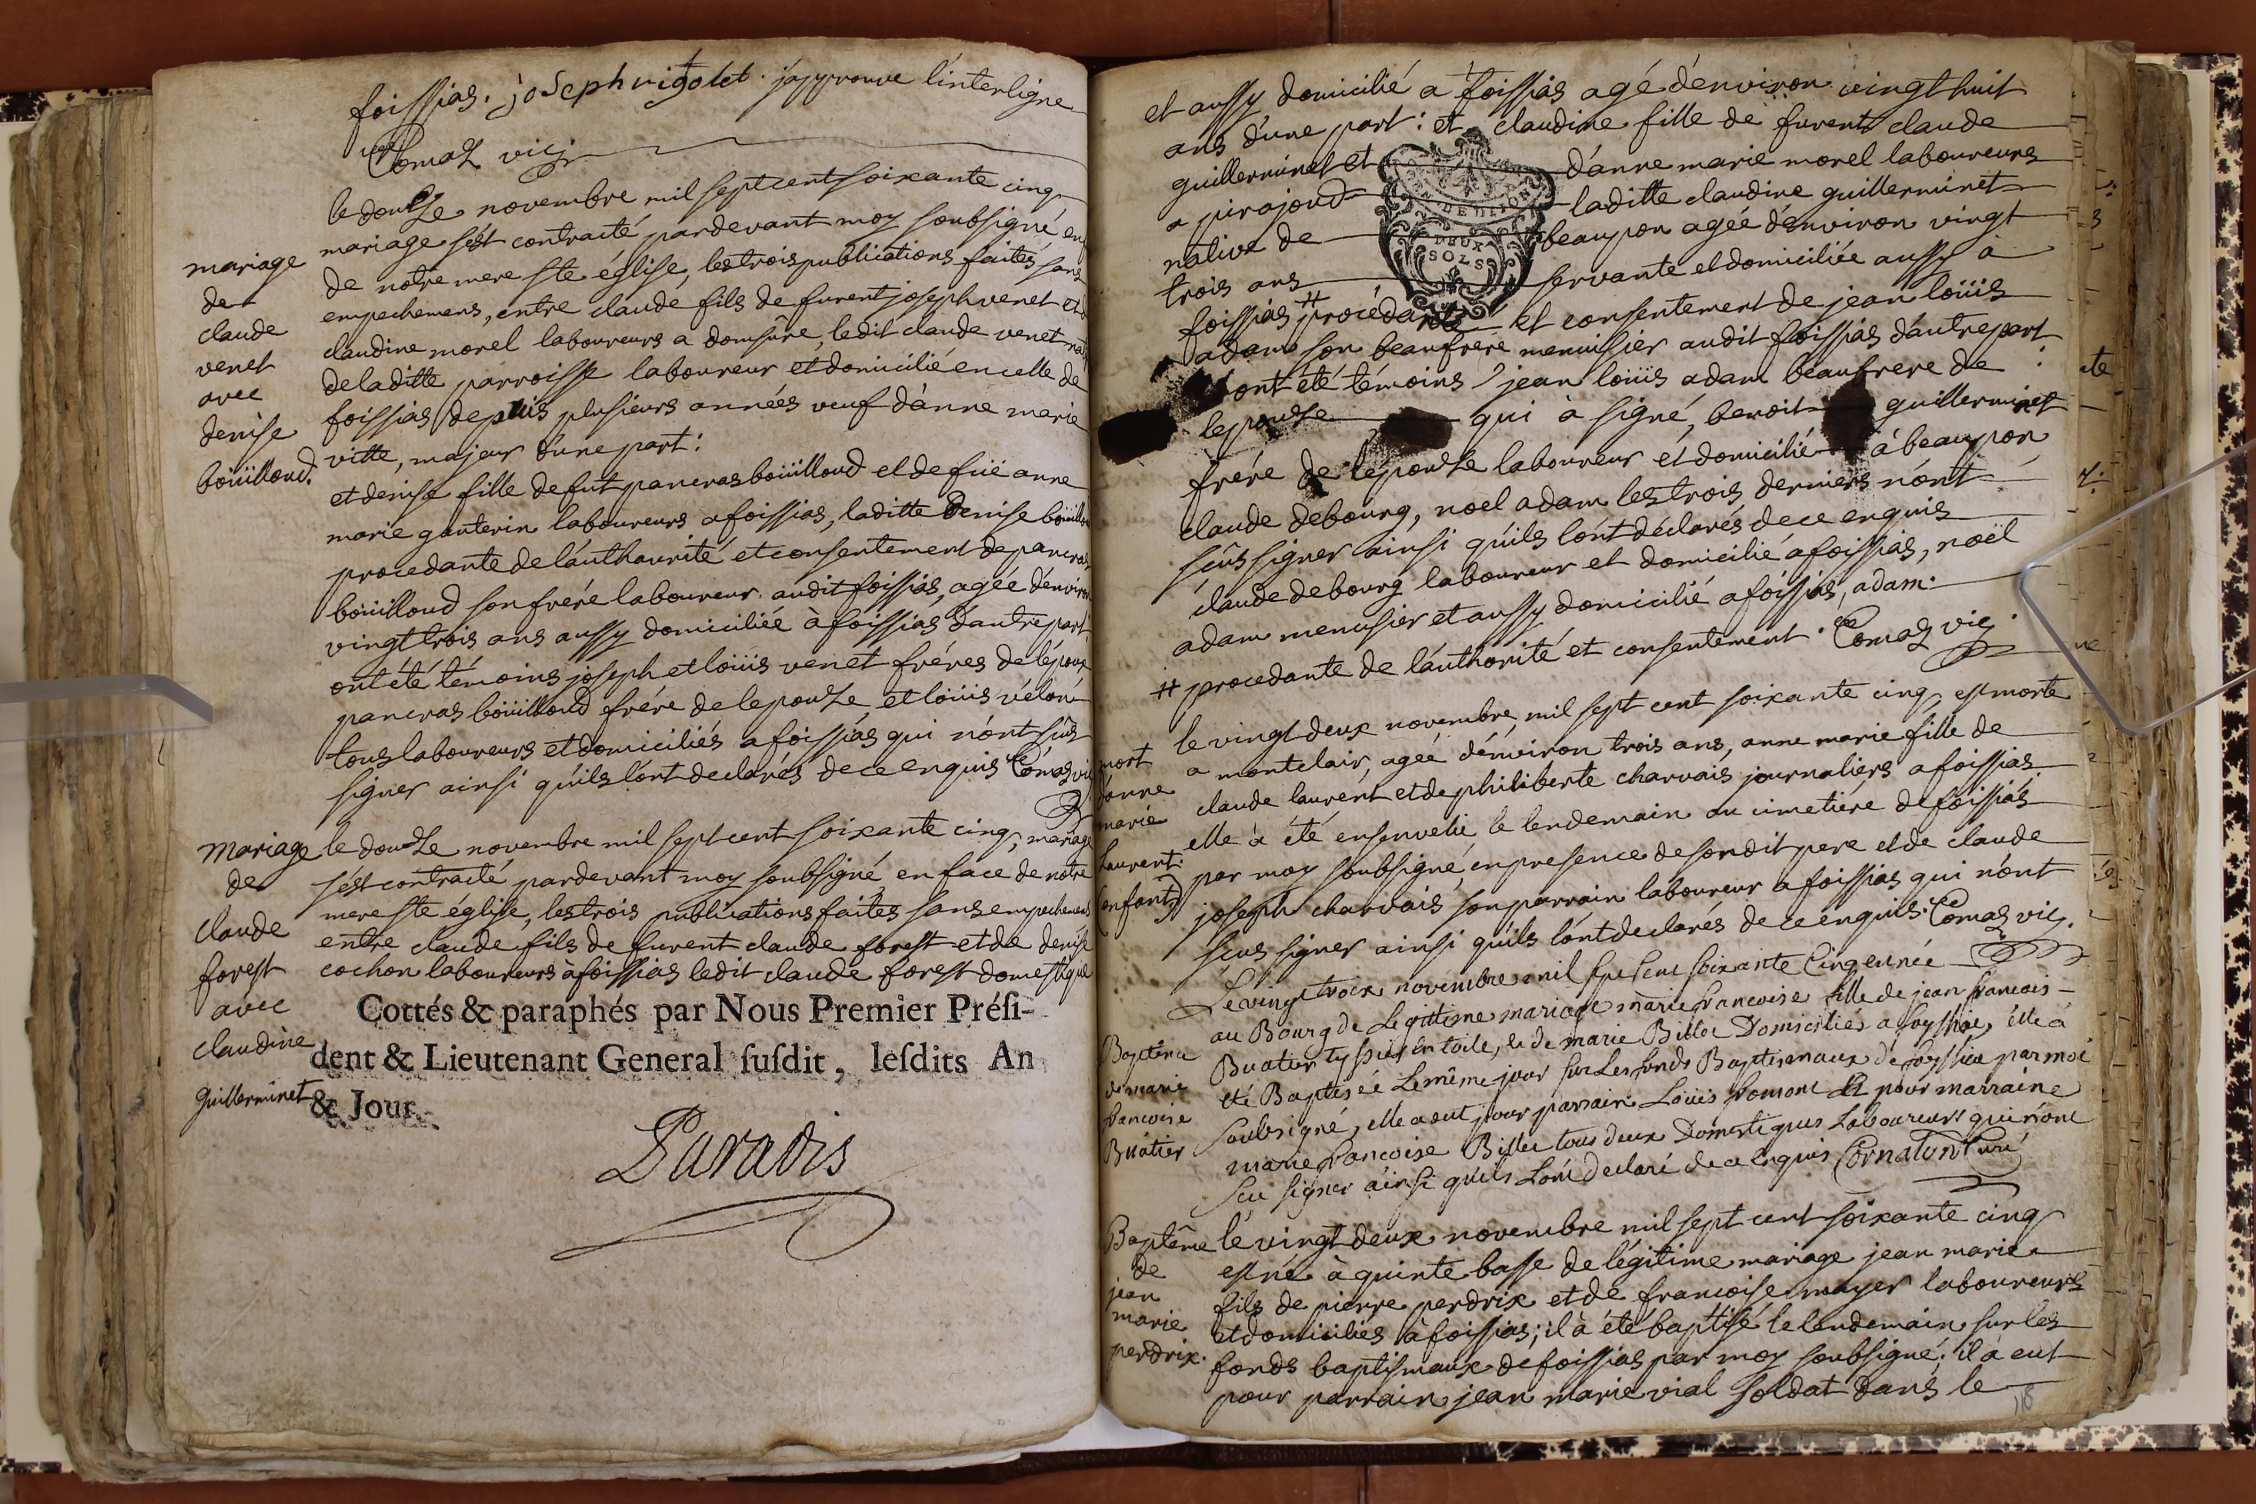 foissias. joseph rigolet. japprouve l'interligne
Comaz vic.
le douze novembre mil sept cent soixante cinq
mariage s'est contracté pardevant moy soubsigné en
de notre mere ste église, les trois publications faites sans
empechemens, entre claude fils de furent joseph venet et de
claudine morel laboureurs a domsure, ledit claude venet
de laditte parroisse laboureur et domicilié en celle de
foissias depuis plusieurs années veuf d'anne marie
vitte, majeur d'une part:
et denise fille de fut pancras boüilloud et de fuë anne
marie ganterin laboureurs a foissias, laditte Denise
procedante de l'authaurité et consentement de pancras
boüilloud son frére laboureur audit foissias, agée d'environ
vingt trois ans aussy domiciliée à foissias d'autre part
ont été témoins joseph et loüis venet fréres de l'époux
pancras boüilloud frére de lepouze et loüis
tous laboureurs et domiciliés a foissias qui n'ont sûs
signer ainsi qu'ils l'ont declarés de ce enquis Comaz vic
mariage
de
claude
venet
avec
denise
boüilloud.
le douze novembre mil sept cent soixante cinq, mariage
s'est contracté pardevant moy soubsigné en face de notre
mere ste église, les trois publications faites sans empechemens
entre claude fils de furent claude forest et de denise
cochon laboureurs à foissias ledit claude forest domestique
mariage
de
claude
forest
avec
claudine
guillerminet
Cottés & paraphés par Nous Premier Préſi-
dent & Lieutenant General ſuſdit, leſdits An
& Jour.
Paradis
et aussy domicilié a foissias agé d'environ vingt huit
ans d'une part: et claudine fille de furent claude
guillerminet et d'anne marie morel laboureurs
a pirajoud laditte claudine guillerminet
native de beaupon agée d'environ vingt
trois ans servante et domiciliée aussy a
foissias # procédante et consentement de jean loüis
adam son beaufrere menusier audit foissias d'autre part
ont été témoins jean loüis adam beaufrere de
lepouse qui à signé, benoit guillerminet
frére de l'épouze laboureur et domicilié à beaupon
claude debourg, noel adam les trois derniers n'ont
sçûs signer ainsi qu'ils l'ont déclarés de ce enquis
claude debourg laboureur et domicilié a foissias, noël
adam menusier et aussy domicilié a foissias, adam.
# procedante de l'authorité et consentement. Comaz vic.
DEUX
SOLS
le vingt deux novembre mil sept cent soixante cinq, est morte
a montclair, agée d'environ trois ans, anne marie fille de
claude laurent et de philiberte charvais journaliers a foissias
elle à été ensevelie le lendemain au cimetiére de foissias
par moy soubsigné, en presence de son dit pere et de claude
joseph charvais son parrain laboureur a foissias qui n'ont
sçus signer ainsi qu'ils l'ont declarés de ce enquis. Comaz vic.
mort
d'anne
marie
laurent.
(enfant)
Le vingt trois novembre mil sept cent soixante Cinq est née
au Bourg de Legitime mariage marie francoise fille de jean francois
Buatier tyssier en toile, et de marie Billet Domiciliés a foyssia, elle a
été Baptisée Le même jour sur Les fonds Baptismaux de foyssia par moi
Soubsigné, elle a eut pour parrain Loüis fromont et pour marraine
marie francoise Billet tous deux Domestiques Laboureurs qui n'ont
sçu signer ainsi qu'ils L'ont déclaré de ce enquis Cornaton Curé
Baptême
de marie
francoise
Buatier
le vingt deux novembre mil sept cent soixante cinq
est né à quinte basse de légitime mariage jean marie
fils de pierre perdrix et de francoise mayer laboureurs
et domiciliés à foissias; il à été baptisé le lendemain sur les
fonds baptismaux de foissias par moy soubsigné; il à eut
pour parrain jean marie vial soldat dans le
Baptême
de
jean
marie
perdrix.